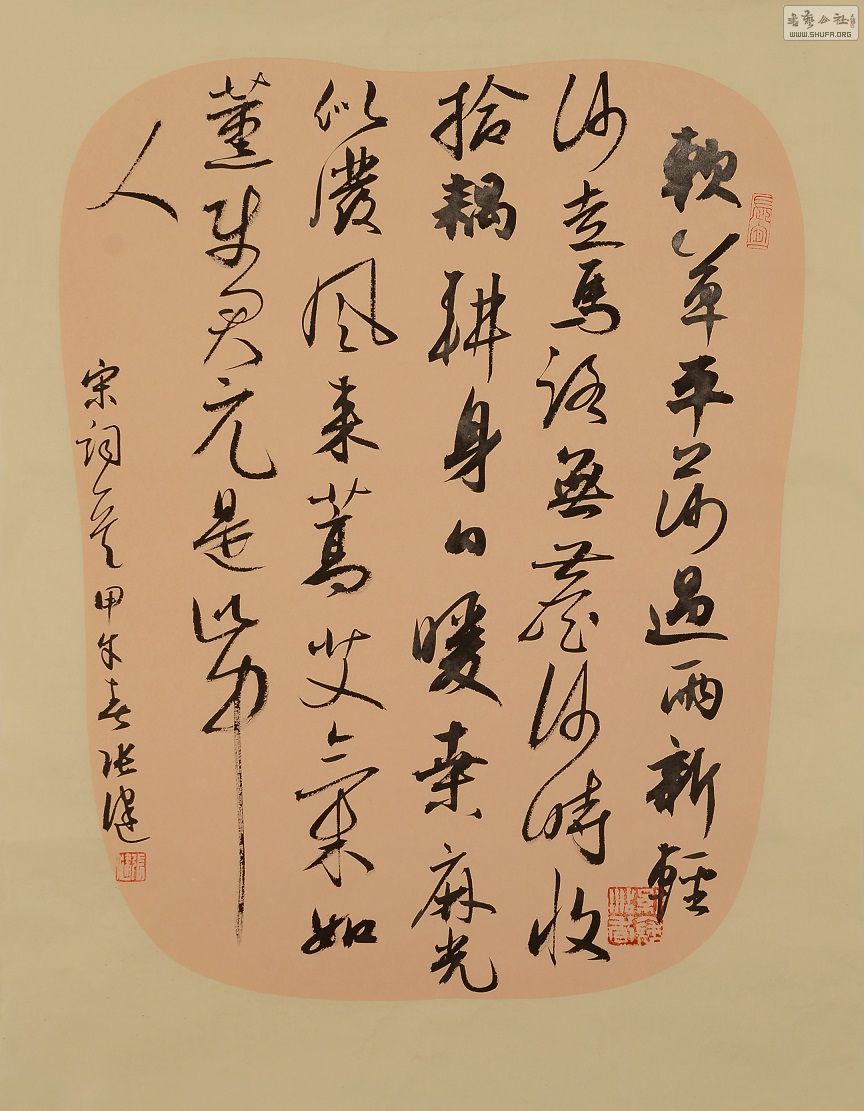 軟草平莎過雨新輕
沙走馬路無塵何時收
拾耦耕身日暖桑麻光
似潑風来蒿艾氣如
薰使君元是此中
人
宋詞一首甲午春張健
書藝公社
WWW.SHUFA.ORG